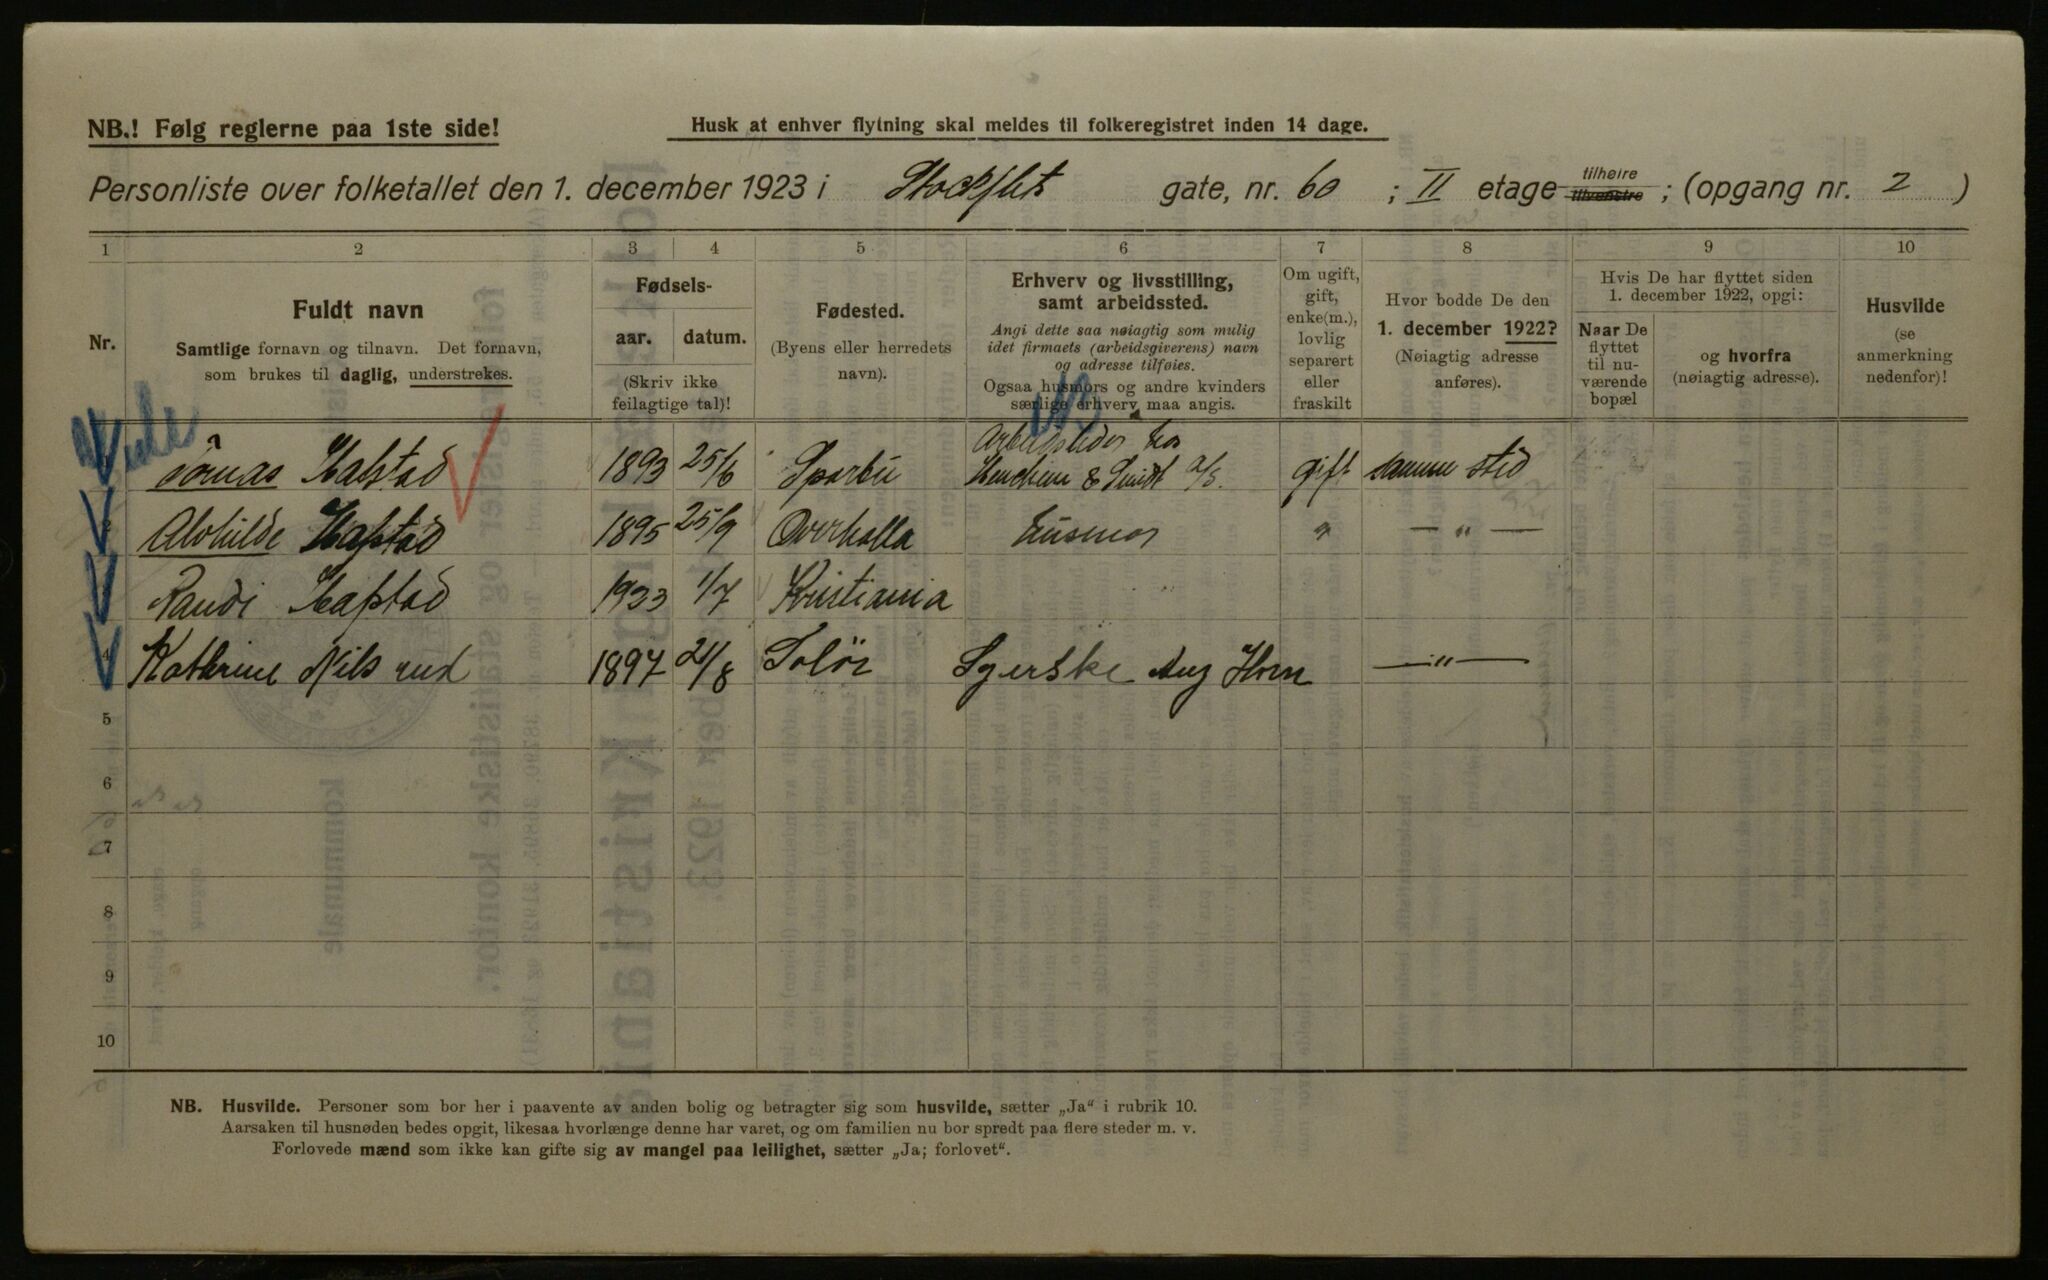 NB.! Følg reglerne paa 1ste side!
Husk at enhver flytning skal meldes til folkeregistret inden 14 dage.
Personliste over folketallet den 1. december 1923 i Stockflets gate, nr. 60 ; II etage tilhøire tilvenstre ; (opgang nr. 2 )
1 2 3 4 5 6 7 8 9 10
Nr.
Fuldt navn
Samtlige fornavn og tilnavn. Det fornavn,
som brukes til daglig, understrekes.
Fødsels-
aar. datum.
(Skriv ikke
feilagtige tal)!
Fødested.
(Byens eller herredets
navn).
Erhverv og livsstilling,
samt arbeidssted.
Angi dette saa nøiagtig som mulig
idet firmaets (arbeidsgiverens) navn
og adresse tilføies.
Ogsaa husmors og andre kvinders
særlige erhverv maa angis.
Om ugift,
gift,
enke(m.),
lovlig
separert
eller
fraskilt
Hvor bodde De den
1. december 1922?
(Nøiagtig adresse
anføres).
Hvis De har flyttet siden
1. december 1922, opgi:
Naar De
flyttet
til nu-
værende
bopæl
og hvorfra
(nøiagtig adresse).
Husvilde
(se
anmerkning
nedenfor)!
Arbeidsleder hos
Tomas Hafstad 1893 25/6 Sparbu & Smidt A/S. gift samme sted
2 Alvhilde Hafstad 1895 25/9 Overhalla Husmor " — " —
Randi Hafstad 1923 1/7 Kristiania
4 Kathrine Nilsrud 1897 21/8 Solör Syerske Aug Horn — " —
5
6
7
8
9
10
NB. Husvilde. Personer som bor her i paavente av anden bolig og betragter sig som husvilde, sætter „Ja" i rubrik 10.
Aarsaken til husnøden bedes opgit, likesaa hvorlænge denne har varet, og om familien nu bor spredt paa flere steder m. v.
Forlovede mænd som ikke kan gifte sig av mangel paa leilighet, sætter „Ja; forlovet".